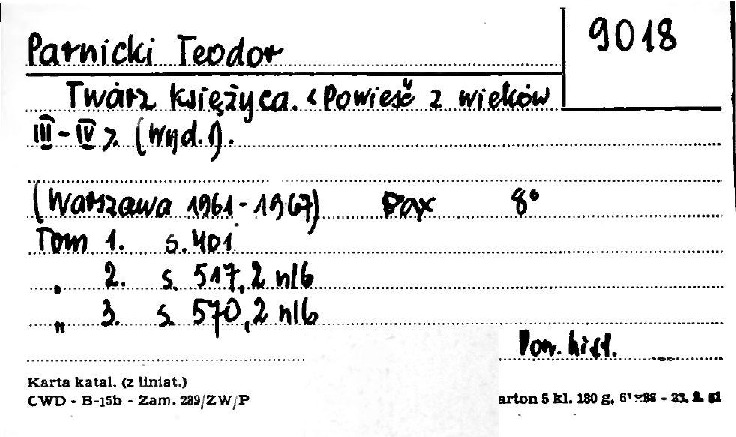 Parnicki Teodor
9018
Twarz księżyca. <Powieść z wieków
III-IV>. (Wyd. 1).
(Warszawa 1961-1967) Pax 8°
Tom 1. s. 401
" 2. s. 517, 2 nlb
" 3. s. 570, 2 nlb
Pow. hist.
Karta katal. (z liniat.)
CWD - B-15b - Zam. 289/ZW/P
arton 5 kl. 180 g.